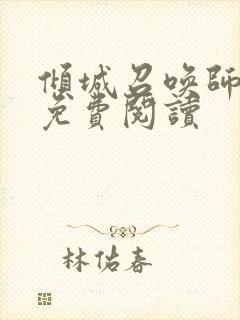 傾城召喚師
免費閱讀
林佑春